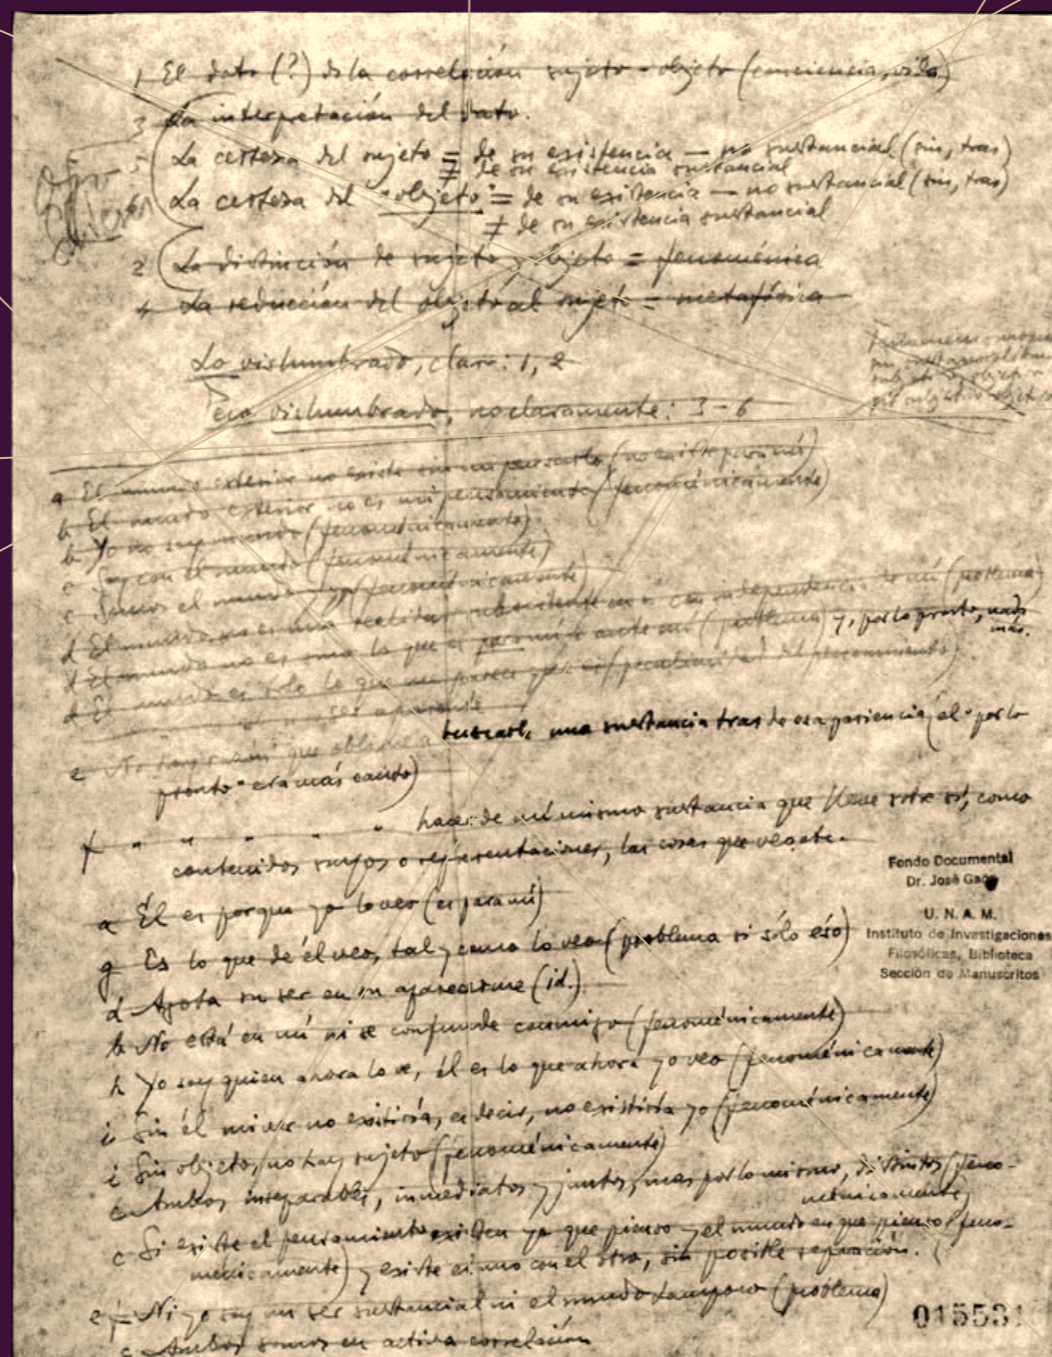 1 El dato (?) de la correlación sujeto-objeto (conciencia, vida)
3 La interpretación del dato.
5 La certeza del sujeto = de su existencia — no sustancial (sin, tras)
≠ de su existencia sustancial
6 La certeza del "objeto" = de su existencia — no sustancial (sin, tras)
≠ de su existencia sustancial
2 La distinción de sujeto y objeto = fenoménica
4 La reducción del objeto al sujeto = metafísica
Lo vislumbrado, claro: 1, 2
Pero vislumbrado, no claramente: 3-6
a El mundo exterior no existe sin mi pensarlo (no existe para mí)
b El mundo exterior no es mi pensamiento (fenoménicamente)
b Yo no soy mundo (fenoménicamente)
c Soy con el mundo (fenoménicamente)
c Somos el mundo y yo (fenoménicamente)
d El mundo no es una realidad subsistente en sí con independencia de mí (problema)
d El mundo no es sino lo que es para mí o ante mí (problema) y, por lo pronto, nada
más.
d El mundo es sólo lo que me parece que es (peculiaridad del pensamiento)
ser aparente
e No hay razón que obligue a buscarle una sustancia tras de esa apariencia (el "por lo
pronto" era más cauto)
f " " " " " hacer de mí mismo sustancia que lleve sobre sí, como
contenidos suyos o representaciones, las cosas que veo, etc.
a Él es porque yo lo veo (es para mí)
g Es lo que de él veo, tal y como lo veo (problema si sólo eso)
d Agota su ser en su aparecerme (id.)
b No está en mí ni se confunde conmigo (fenoménicamente)
h Yo soy quien ahora lo ve, él es lo que ahora yo veo (fenoménicamente)
i Sin él mi ver no existiría, es decir, no existiría yo (fenoménicamente)
i Sin objeto, no hay sujeto (fenoménicamente)
c Ambos inseparables, inmediatos y juntos, mas por lo mismo, distintos (feno-
ménicamente)
c Si existe el pensamiento existen yo que pienso y el mundo en que pienso (feno-
ménicamente) y existe el uno con el otro, sin posible separación.
e f Ni yo soy un ser sustancial ni el mundo tampoco (problema)
c Ambos somos en activa correlación
Fondo Documental
Dr. José Gaos
U. N. A. M.
Instituto de Investigaciones
Filosóficas, Biblioteca
Sección de Manuscritos
015531